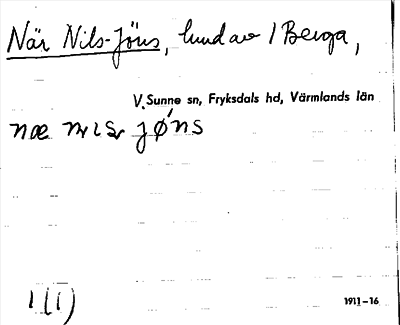 När Nils-Jöns, hund av 1 Berga,
V. Sunne sn, Fryksdals hd, Värmlands län
næ
jǿns
1911-16